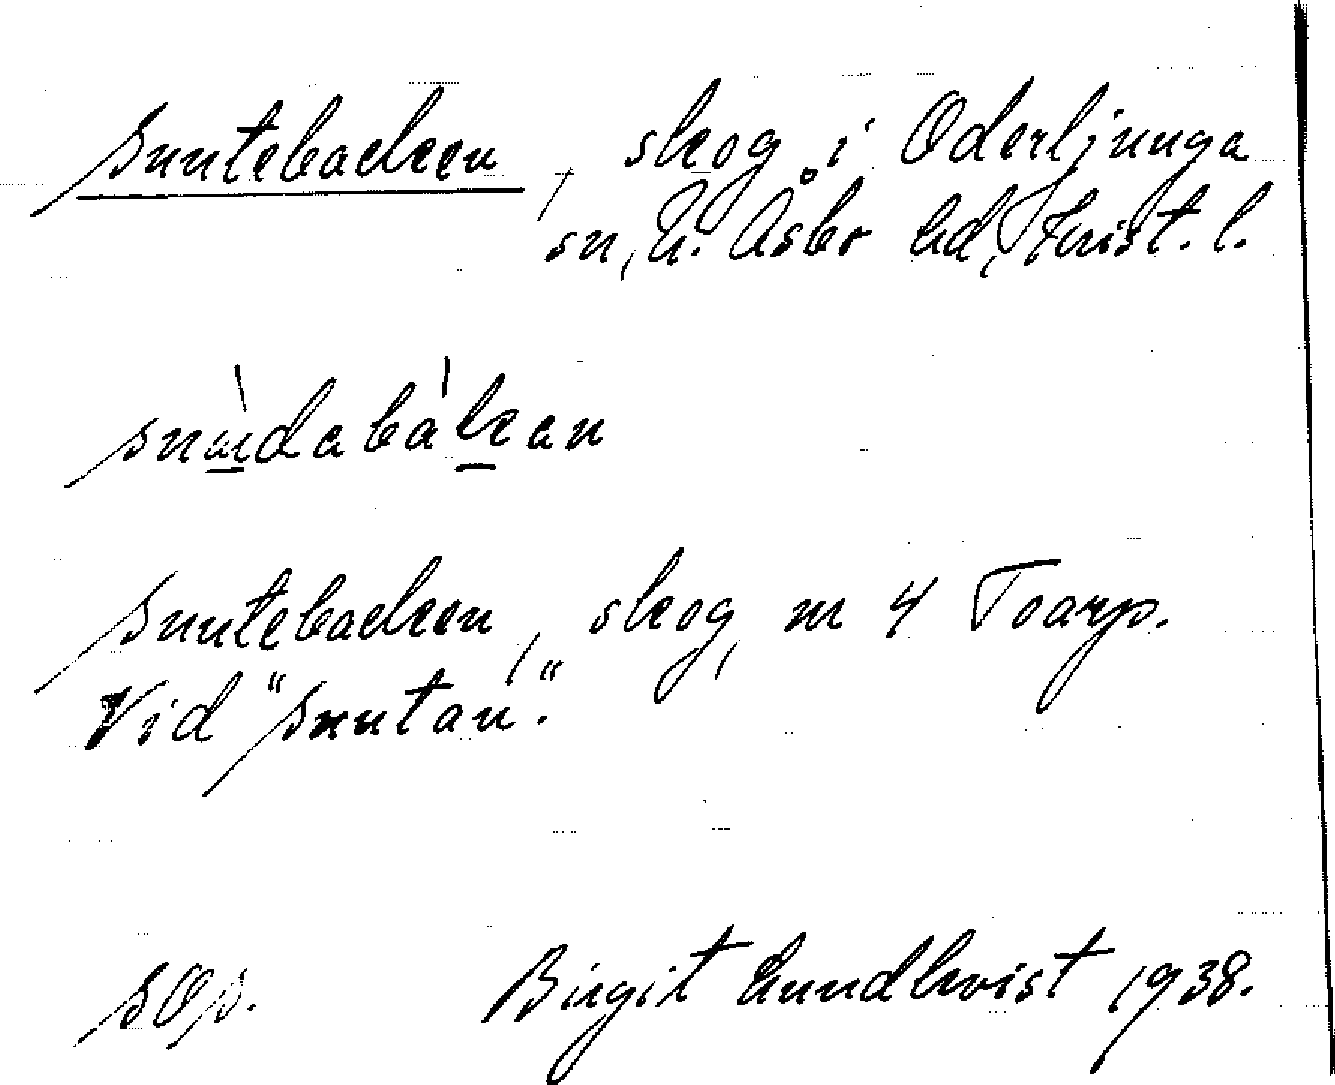 Snutebacken, skog i Oderljunga
sn, N. Åsbo hd, Krist. l.
snùdabákan
Snutebacken, skog, m 4 Toarp.
Vid "Snutan".
S.O.S.
Birgit Lundkvist 1938.